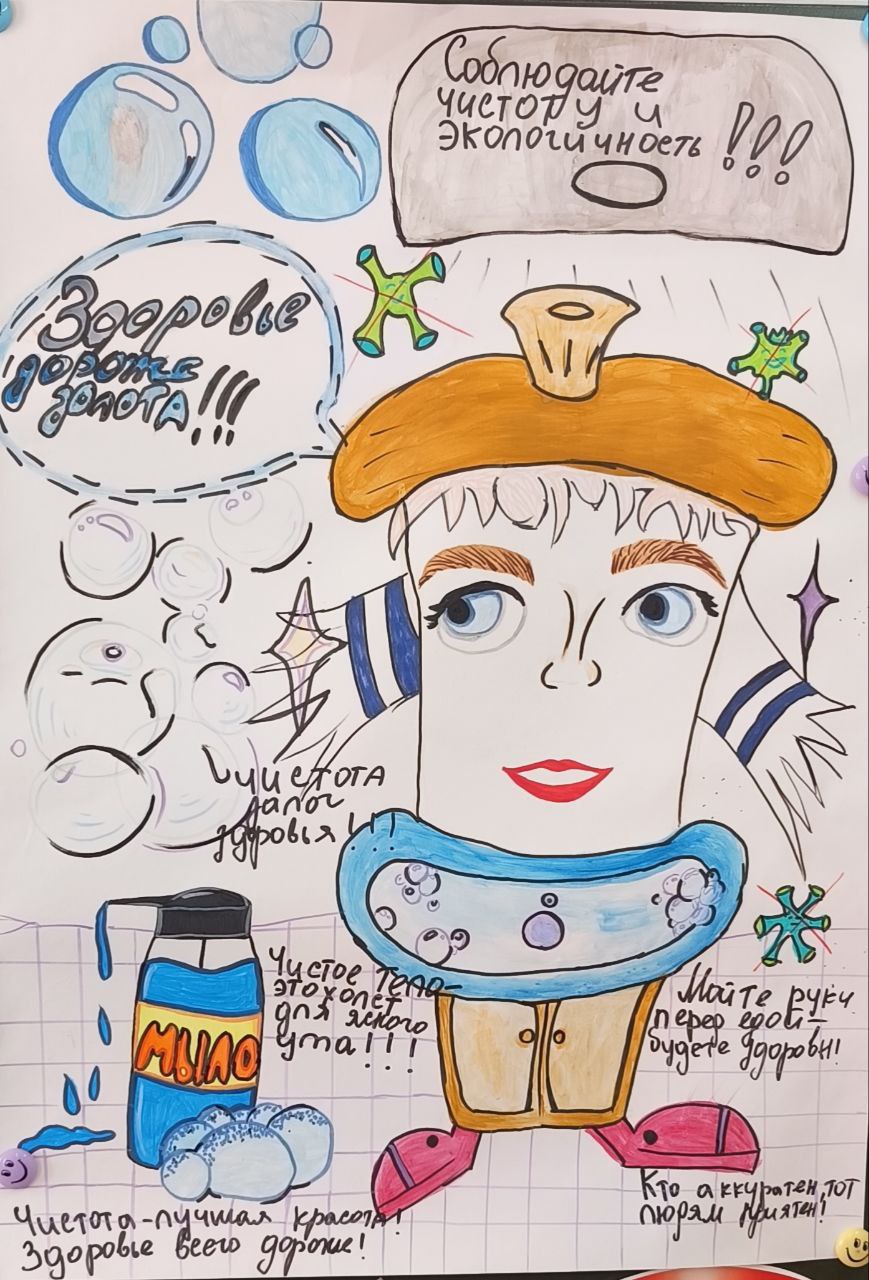 Соблюдайте
чистоту и
экологичность !!!
Здоровье
дороже
золота!!!
Чистота
залог
здоровья!!!
Чистое тело-
это холст
для ясного
ума!!!
МЫЛО
Мойте руки
перед едой—
будете здоровы!
Кто аккуратен, тот
людям приятен!
Чистота-лучшая красота!
Здоровье всего дороже!